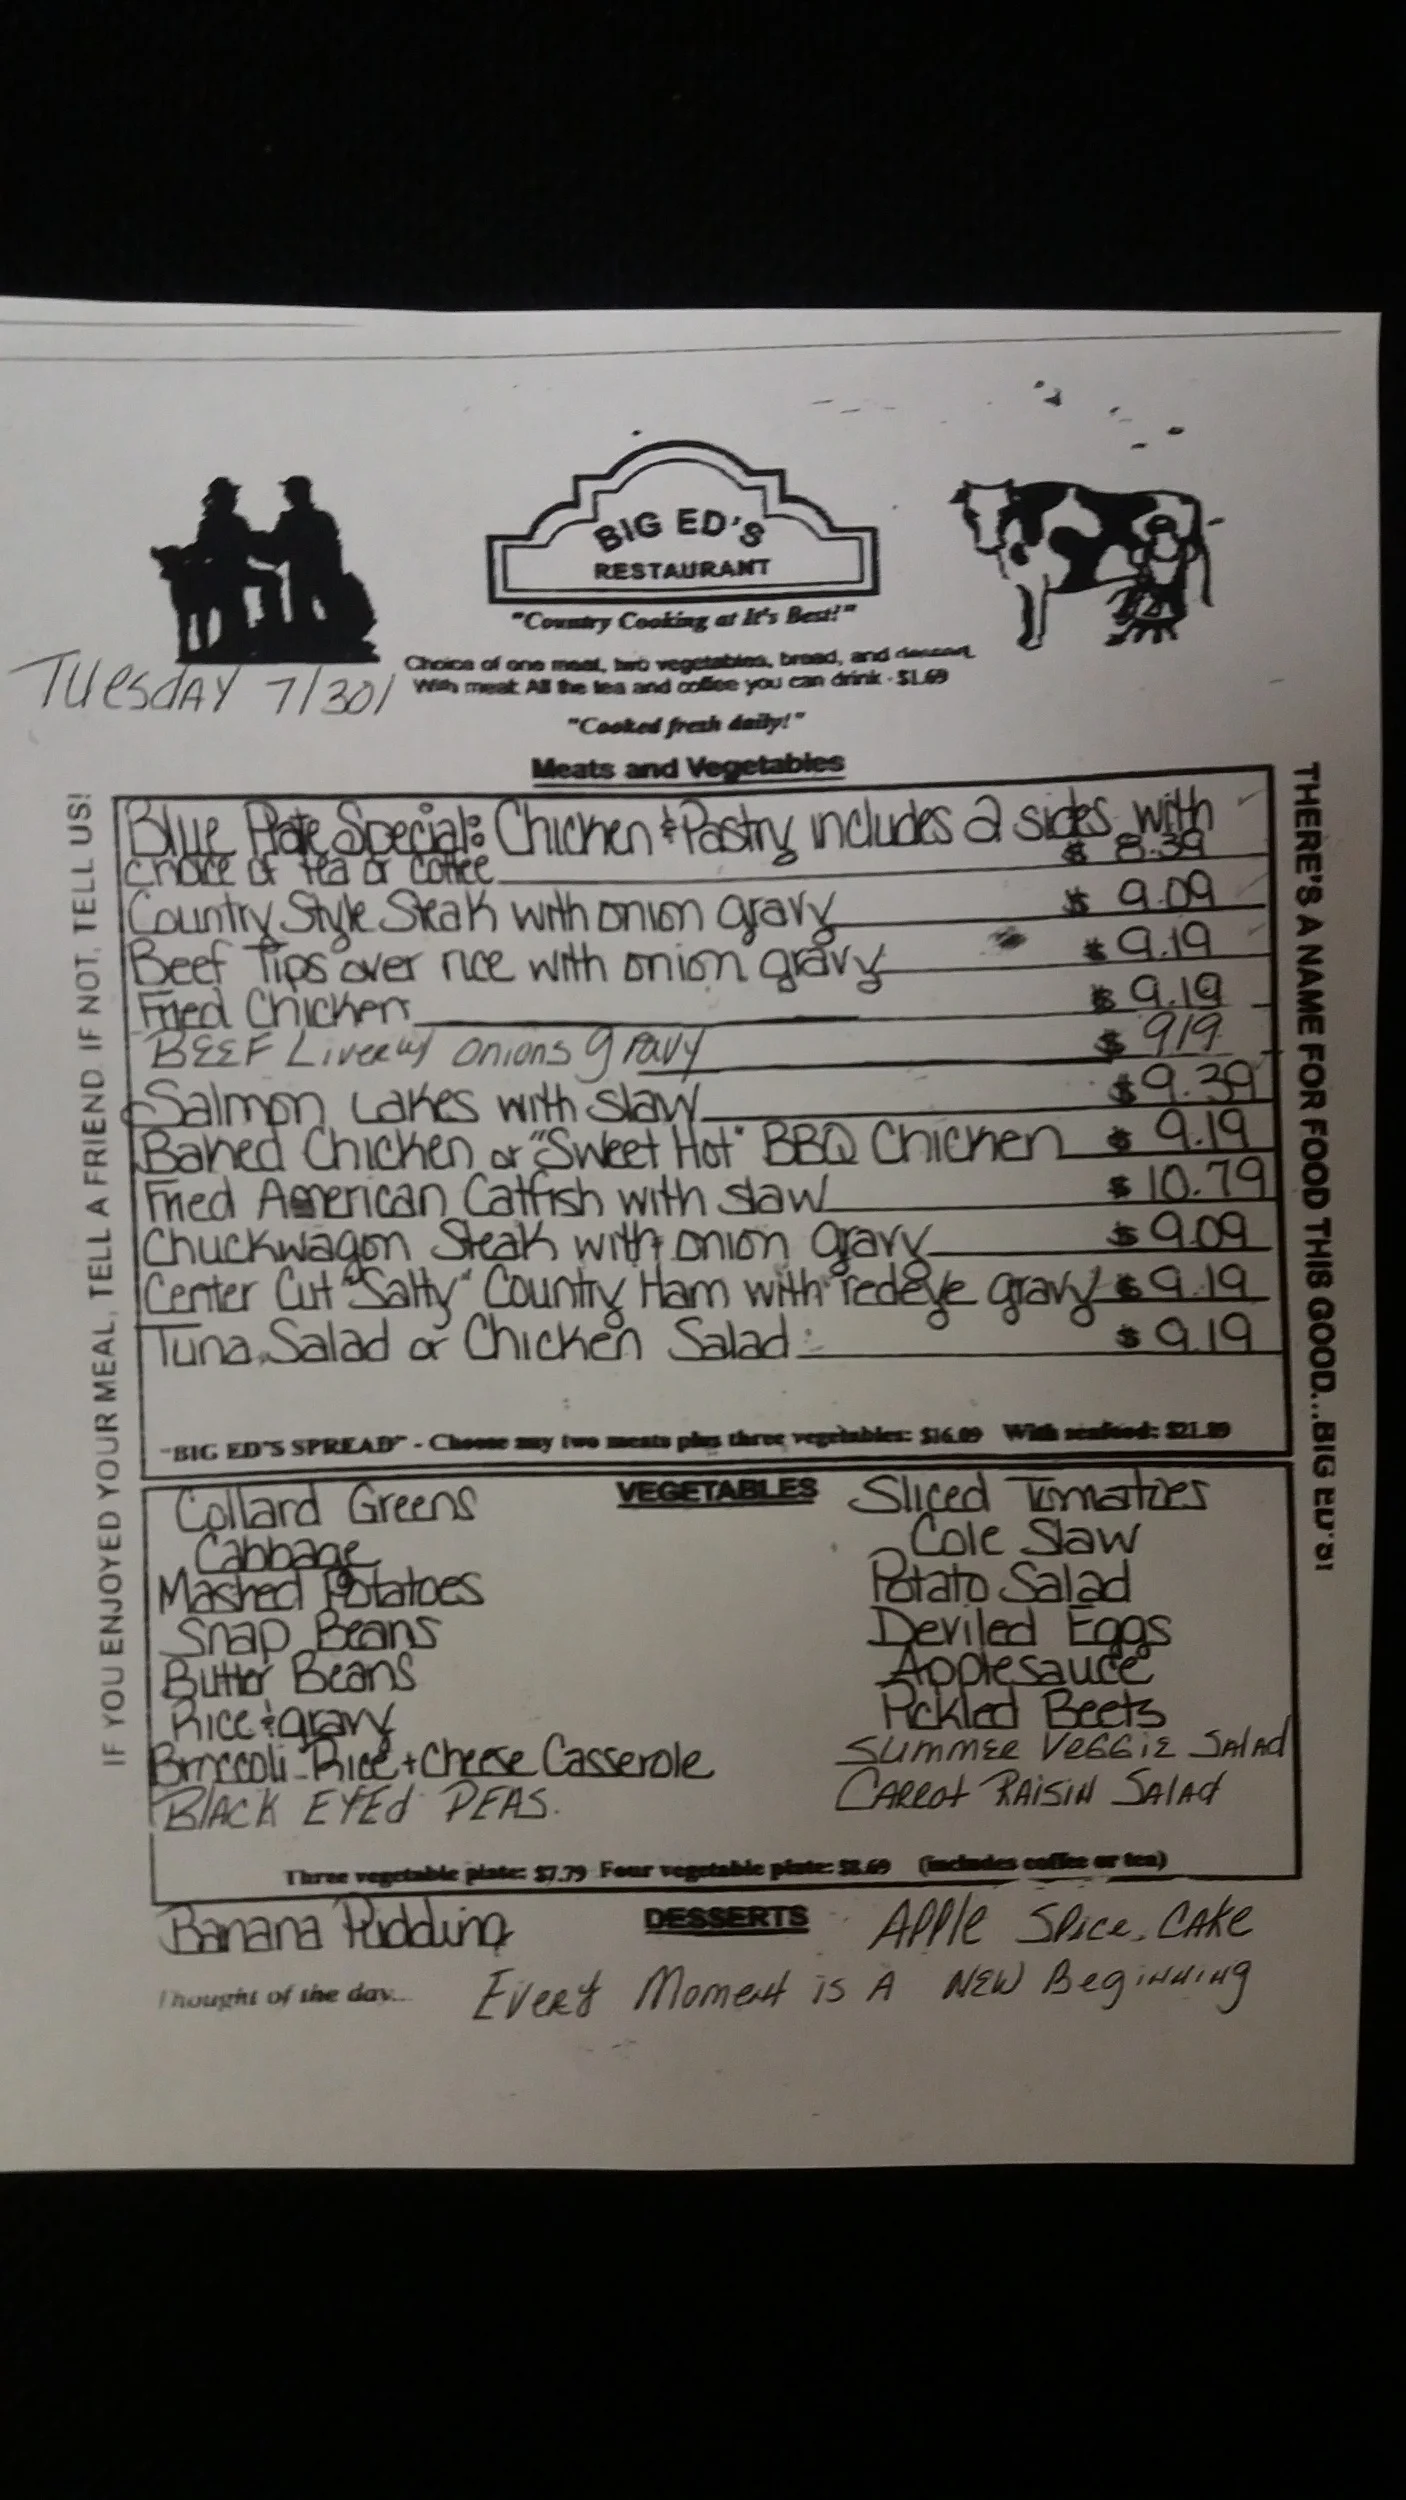 BIG ED'S
RESTAURANT
"Country Cooking at It's Best!"
Choice of one meat, two vegetables, bread, and dessert.
With meat: All the tea and coffee you can drink - $1.69
TUESDAY 7/30/
"Cooked fresh daily!"
Meats and Vegetables
Blue Plate Special: Chicken & Pastry includes 2 sides with
choice of tea or coffee $ 8.39
Country Style Steak with onion gravy $ 9.09
Beef Tips over rice with onion gravy $ 9.19
Fried Chicken $ 9.19
BEEF Liver w/ onions gravy $ 919
Salmon Cakes with slaw $ 9.39
Baked Chicken or "Sweet Hot" BBQ Chicken $ 9.19
Fried American Catfish with slaw $ 10.79
Chuckwagon Steak with onion gravy $ 9.09
Center Cut "Salty" Country Ham with redeye gravy $ 9.19
Tuna Salad or Chicken Salad $ 9.19
"BIG ED'S SPREAD" - Choose any two meats plus three vegetables: $16.09 With seafood:
IF YOU ENJOYED YOUR MEAL, TELL A FRIEND IF NOT, TELL US!
THERE'S A NAME FOR FOOD THIS GOOD...BIG ED'S!
VEGETABLES
Collard Greens
Cabbage
Mashed Potatoes
Snap Beans
Butter Beans
Rice & gravy
Broccoli Rice + Cheese Casserole
BLACK EYEd PEAS.
Sliced Tomatoes
Cole Slaw
Potato Salad
Deviled Eggs
Applesauce
Pickled Beets
SUMMER VEGGIE SALAD
CARROT RAISIN SALAd
Three vegetable plate: $7.79 Four vegetable plate: $8.69 (includes coffee or tea)
DESSERTS
Banana Pudding
APPLE SPICE CAKE
Thought of the day... Every Moment is A NEW Beginning